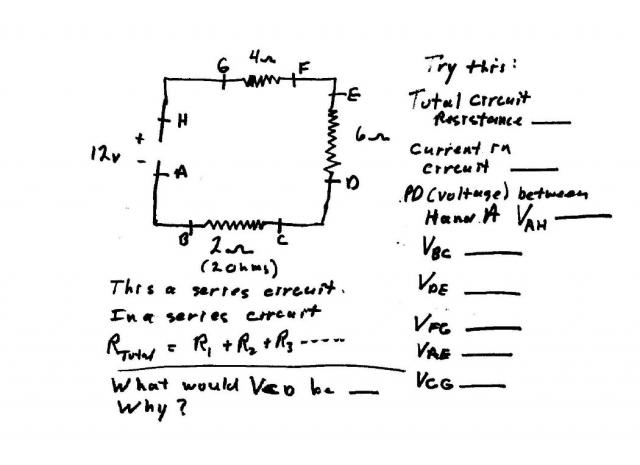 G 4Ω F
E
H
+
12v
-
6Ω
A
D
B
C
2Ω
(2ohms)
This a series circuit.
In a series circuit
R Total = R1 + R2 + R3 -----
What would VCD be __
Why?
Try this:
Total circuit
Resistance __
Current in
circuit __
PD (voltage) between
H and A VAH __
VBC __
VDE __
VFG __
VAE __
VCG __